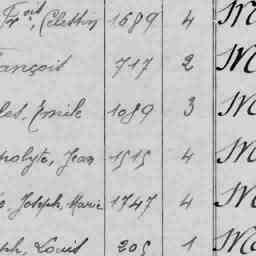 Fr.ois, Célestin 1689 4 M
rançois 717 2 M
les, Emile 1089 3 M
polyte, Jean 1515 4 M
Joseph, Marie 1747 4 M
ph, Louis 205 1 M